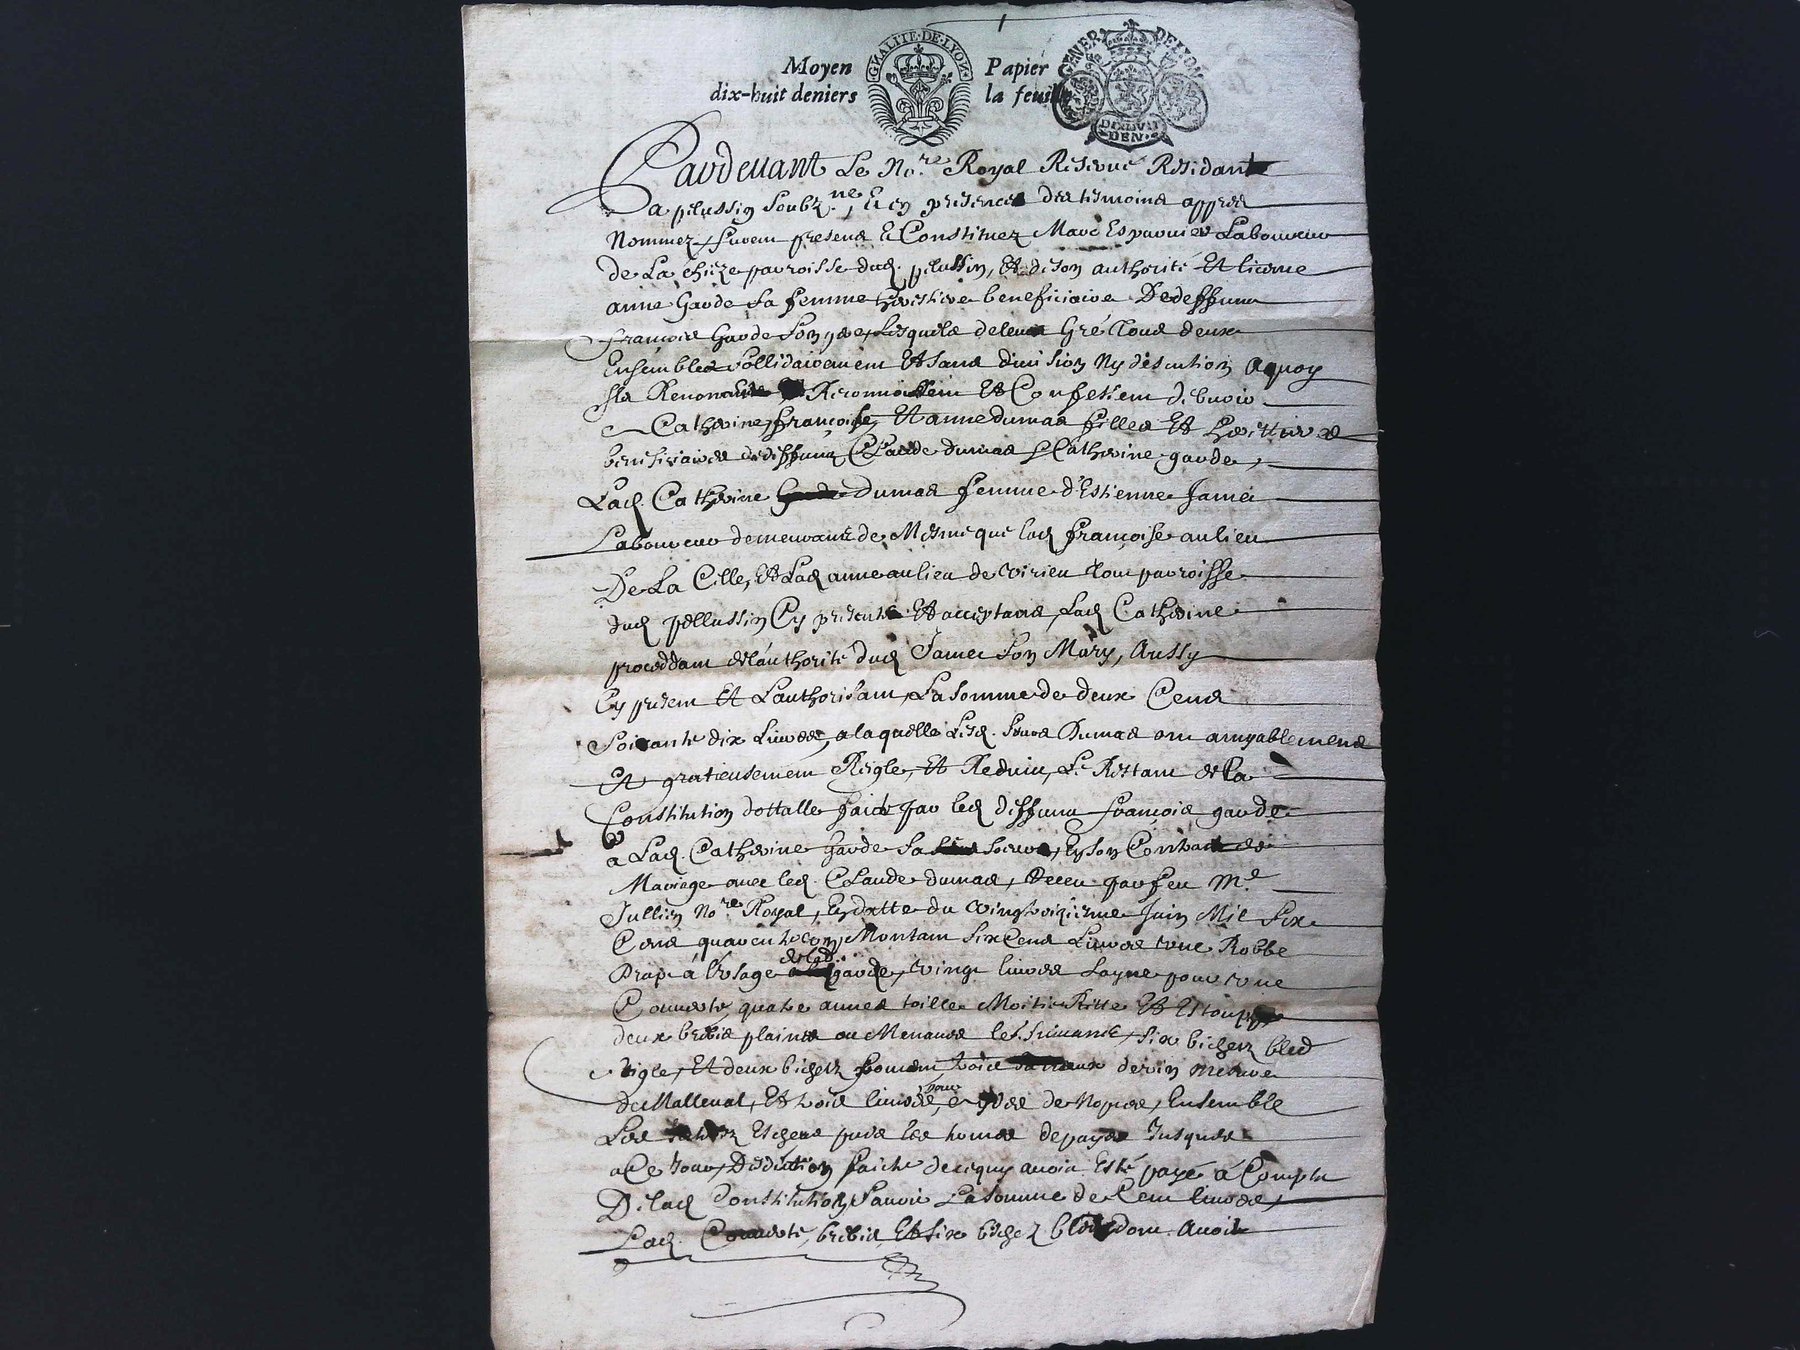 GNALITE·DE·LYON
GENER DE LYON
Moyen Papier
dix-huit deniers la feuille
DIXHUIT
DEN
Pardevant Le No.re Royal Reservé Residant
a pelussin soubz.né, Et en presences des tesmoins appres
Nommez, furent presens Et Constituez Marc Esparvier Laboureur
de La chieze parroisse dud. pelussin, Et de son authorité Et licence
anne Garde Sa femme heritiere beneficiaire De deffunt
françois Garde Son pere, Lesquels de leur Gré Tous deux
Ensembles sollidairement Et sans division Ny discution Aquoy
Ils Renoncent Reconnoissent Et Confessent debvoir
Catherine, françoise, Et anne dumas filles Et heritieres
beneficiaires de deffuntz Claude dumas & Catherine garde,
Lad. Catherine dumas femme d'Estienne Jamet
Laboureur demeurant de Mesme que lad. françoise au lieu
De La Cille, Et Lad. anne au lieu de virieu Tous parroisse
dud. pellussin Cy presents Et acceptans, Lad. Catherine
proceddant de l'authorité dud. Jamet Son Mary, Aussy
Cy present Et L'authorisant, La somme de deux Cens
Soixante dix Livres, a laquelle Lesd. Soeurs Dumas ont amyablement
Et gratieusement Regle, Et Reduit, Le Restant de la
Constitution dottalle faicte par led. deffunt françois garde
a Lad. Catherine Garde Sa Soeur, En Son Contract de
Mariage avec led. Claude dumas, Receu par feu M.e
Jullien No.re Royal, En datte du vingtroizieme Juin Mil Six
Cens quarente Montant Six Cens Livres une Robbe
Drap à L'usage de lad. garde, vingt livres Layne pour une
Couverte, quatre annes toille Moitié Ritte Et Estouppe
deux brebis plaines ou Menants les Suivants, Six bichetz bled
seigle, Et deux bichetz froment, trois de vin Mesure
de Malleval, Et trois livres, pour de Nopces, Ensemble
Les Escheus puis les homes de payes Jusques
a Ce Jour, Deduction faicte de ce quy avoit Esté payé à Compte
De lad. Constitution, Savoir La somme de Cent livres,
Lad. Couverte, brebis, Et Six bichez bled, dont Avoit